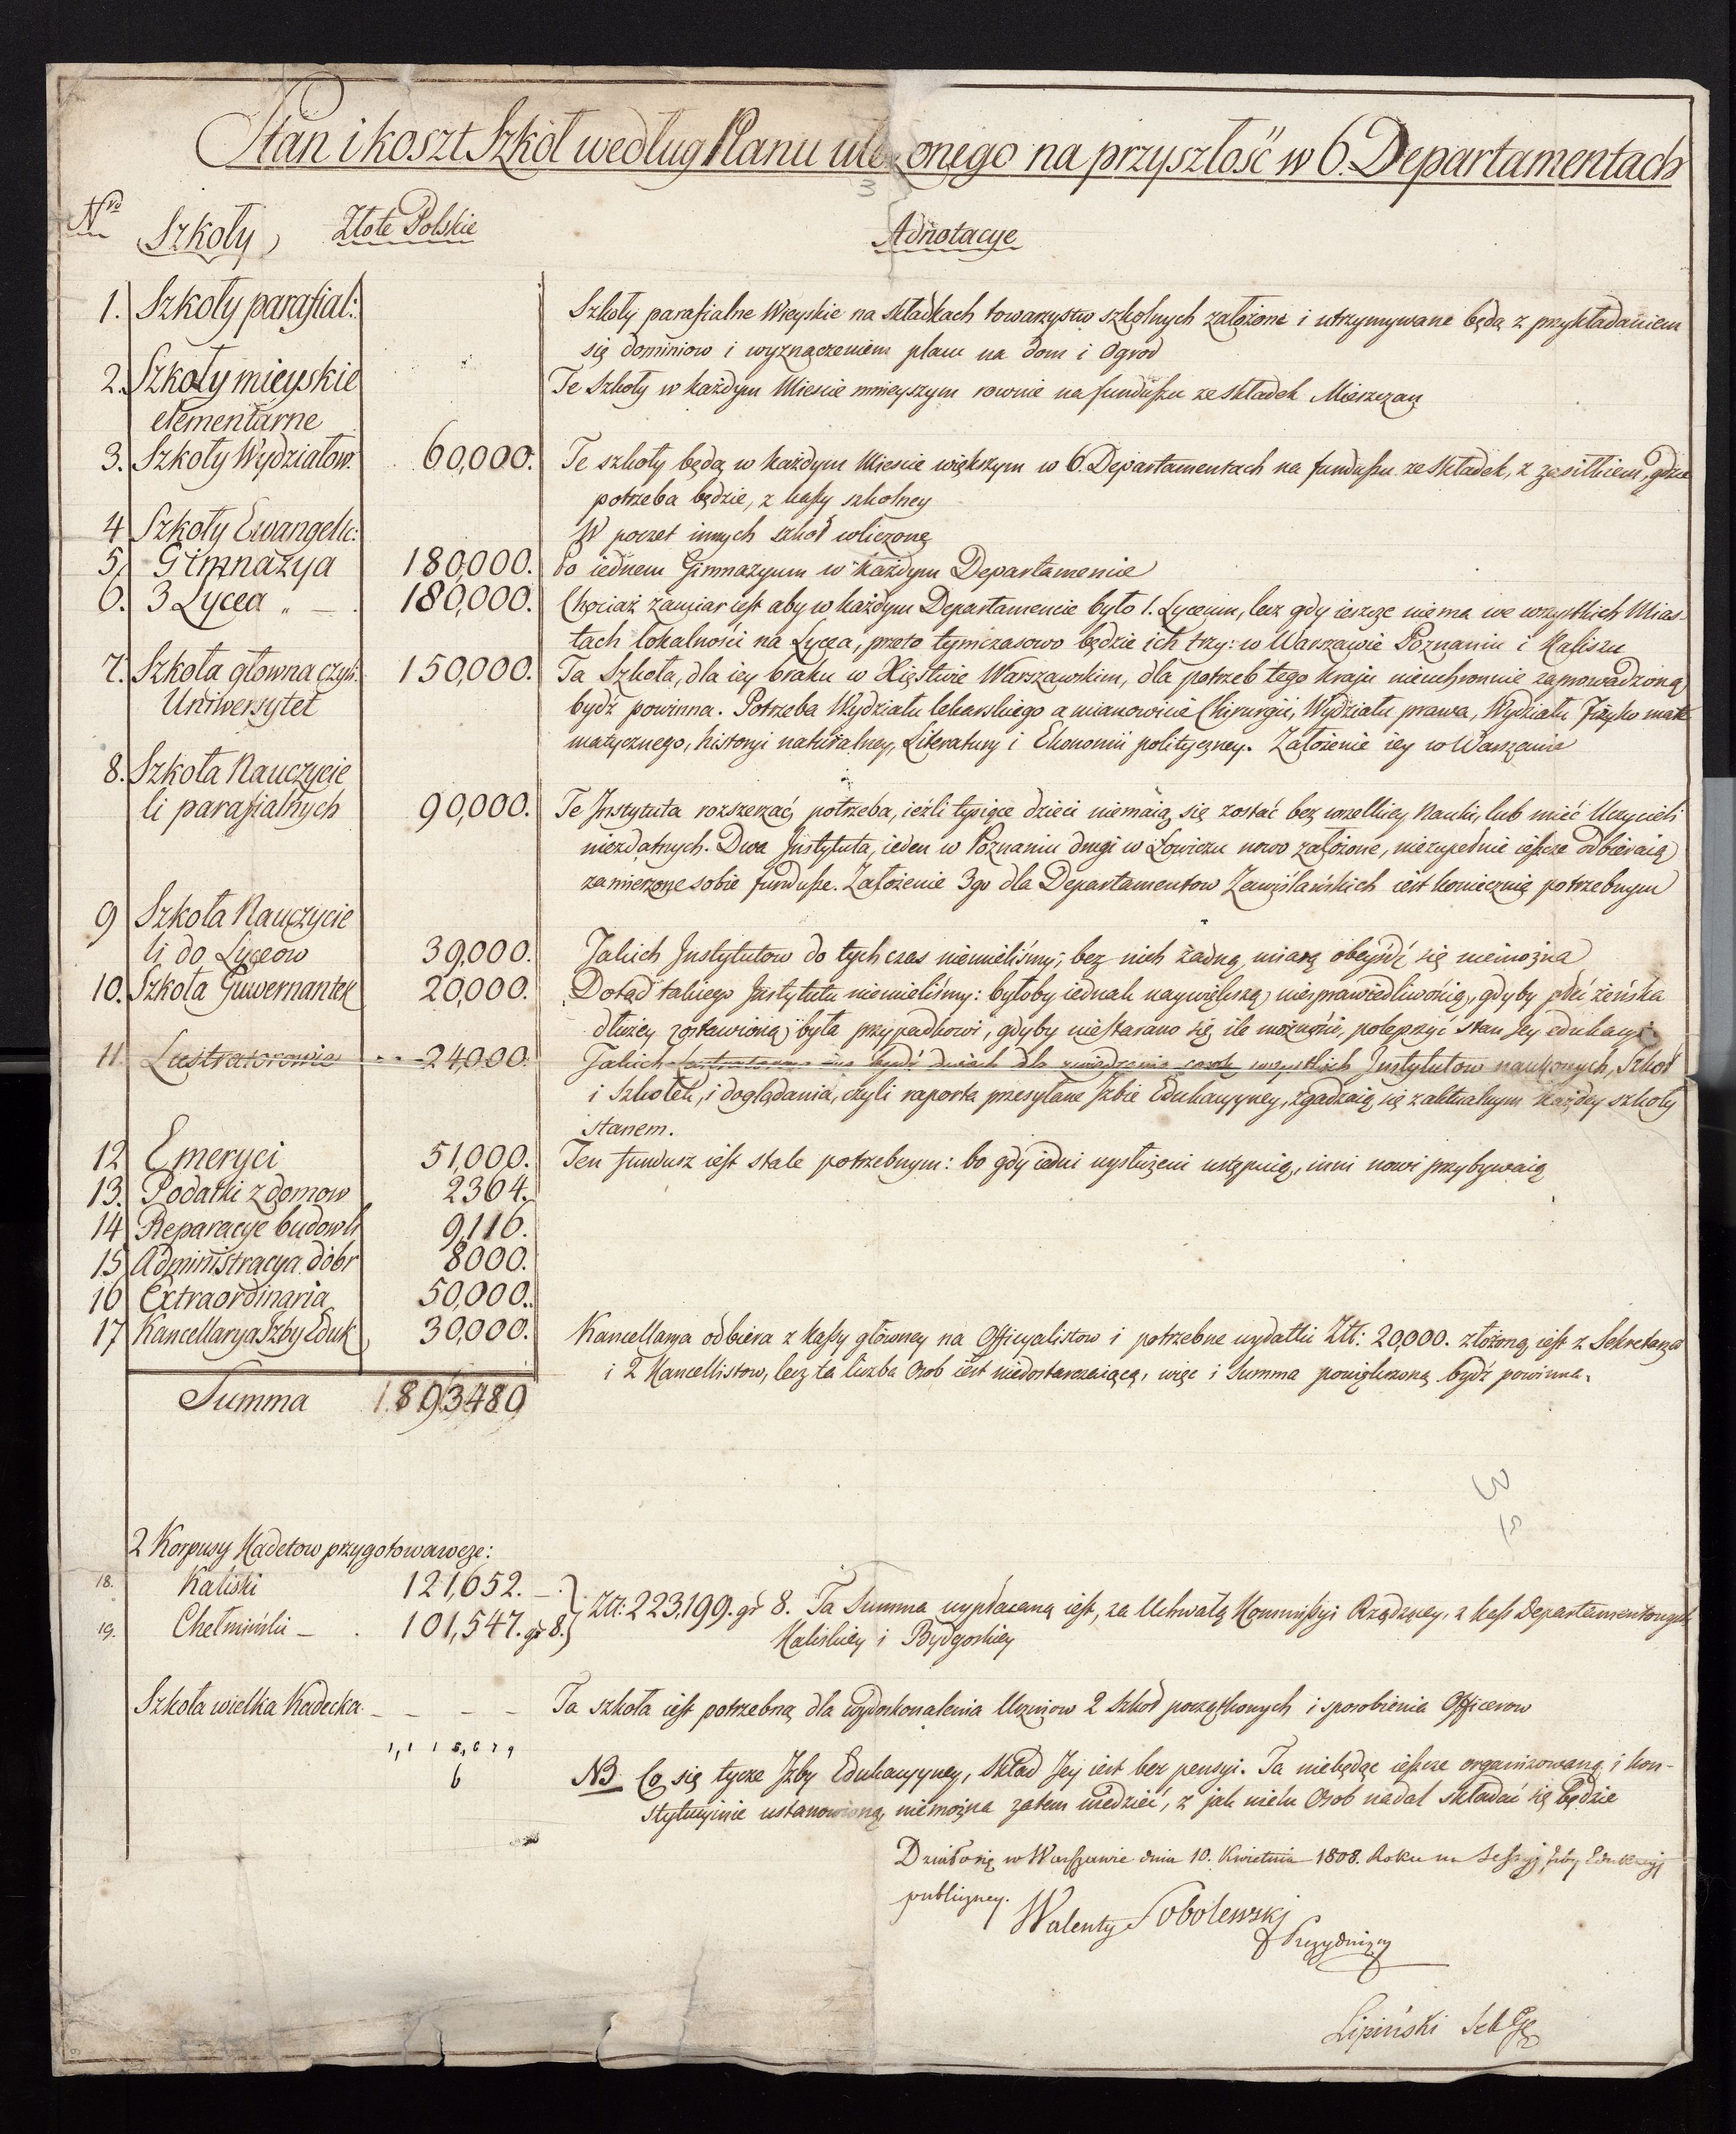 Stan i koszt Szkół według Planu ułożonego na przyszłość w 6. Departamentach
Nro Szkoły Złote Polskie Adnotacye
1. Szkoły parafial: Szkoły parafialne Wieyskie na składkach towarzystw szkolnych założone i utrzymywane będą z przykładaniem
się dominiow i wyznaczeniem placu na dom i Ogrod
2. Szkoły mieyskie Te Szkoły w każdym Mieście mnieyszym rownie na funduszu ze składek Mieszczan
elementarne
3. Szkoły Wydziałow: 60,000. Te szkoły będą w każdym Mieście większym w 6. Departamentach na funduszu ze składek, z zasiłkiem, gdzie
potrzeba będzie, z kassy szkolney
4 Szkoły Ewangelic: W poczet innych szkoł wliczone
5. Gimnazya 180,000. Po iednem Gimnazyum w każdym Departamencie
6. 3 Lycea „ — . 180,000. Chociaż zamiar iest aby w każdym Departamencie było 1. Lyceum, lecz gdy ieszcze niema we wszystkich Mias-
tach lokalności na Lycea, przeto tymczasowo będzie ich trzy: w Warszawie Poznaniu i Kaliszu
7. Szkoła głowna czyli 150,000. Ta Szkoła, dla iey braku w Xięstwie Warszawskim, dla potrzeb tego kraju nieuchronnie zaprowadzoną
Uniwersytet bydź powinna. Potrzeba Wydziału lekarskiego a mianowicie Chirurgii, Wydziału prawa, Wydziału Fizyko mate
matycznego, historyi naturalney, Literatury i Ekonomii polityczney. Założenie iey w Warszawie
8. Szkoła Nauczycie
li parafialnych 90,000. Te Instytuta rozszerzać potrzeba, ieżli tysiące dzieci niemaią się zostać bez wszelkiey Nauki, lub mieć Uczycieli
niezdatnych. Dwa Instytuta, ieden w Poznaniu drugi w Łowiczu nowo założone, niezupełnie ieszcze odbieraią
zamierzone sobie fundusze. Założenie 3go dla Departamentow Zawiślańskich iest koniecznie potrzebnym
9 Szkoła Nauczycie
li do Lyceow 39,000. Takich Instytutow do tych czas niemieliśmy; bez nich żadną miarą obeyść się niemożna
10. Szkoła Guwernantek 20,000. Dotąd takiego Instytutu niemieliśmy: byłoby iednak naywiększą niesprawiedliwością, gdyby płeć żeńska
dłużey zostawioną była przypadkowi, gdyby niestarano się ile możności, polepszyć stan Jey edukacyi
11. Lustratorowie - - - 24,000. Takich Lustratorow ma bydź dwóch dla zwiedzenia wszystkich Instytutow naukowych, Szkoł
i Szkołek, i doglądania, czyli raporta przesyłane Izbie Edukacyyney, zgadzaią się z aktualnym każdey szkoły
stanem.
12 Emeryci 51,000. Ten fundusz iest stale potrzebnym: bo gdy iedni wysłużeni ustępuią, inni nowi przybywaią
13. Podatki z domow 2364.
14 Reparacye budowli 9,116.
15 Administracya dóbr 8000.
16 Extraordinaria 50,000.
17 Kancellarya Izby Eduk 30,000. Kancellarya odbiera z kassy głowney na Officyalistow i potrzebne wydatki Złł: 20,000. złożoną iest z Sekretarza
i 2 Kancellistow, lecz ta liczba Osob iest niedostarczaiącą, więc i Summa powiększoną bydź powinna.
Summa 1.893480
2 Korpusy Kadetow przygotowawcze:
18. Kaliski 121,652. — Złł: 223,199. gr 8. Ta Summa wypłacaną iest, za Uchwałą Kommissyi Rządzącey, z kass Departamentowych
19. Chełmiński — . 101,547. gr 8. Kaliskiey i Bydgoskiey
Szkoła wielka Kadecka - - - - Ta szkoła iest potrzebną dla wydoskonalenia Uczniow 2 Szkoł początkowych i sposobienia Officerow
6
NB. Co się tycze Izby Edukacyyney, skład Jey iest bez pensyi. Ta niebędąc ieszcze organizowaną i kon-
stytucyinie ustanowioną, niemożna zatem wiedzieć, z jak wielu Osob nadal składać się będzie
Działo się w Warszawie dnia 10. Kwietnia 1808. Roku na Sessyi Izby Edukacyi
publiczney.
Walenty Sobolewski
Prezyduiący
Lipiński
3
3